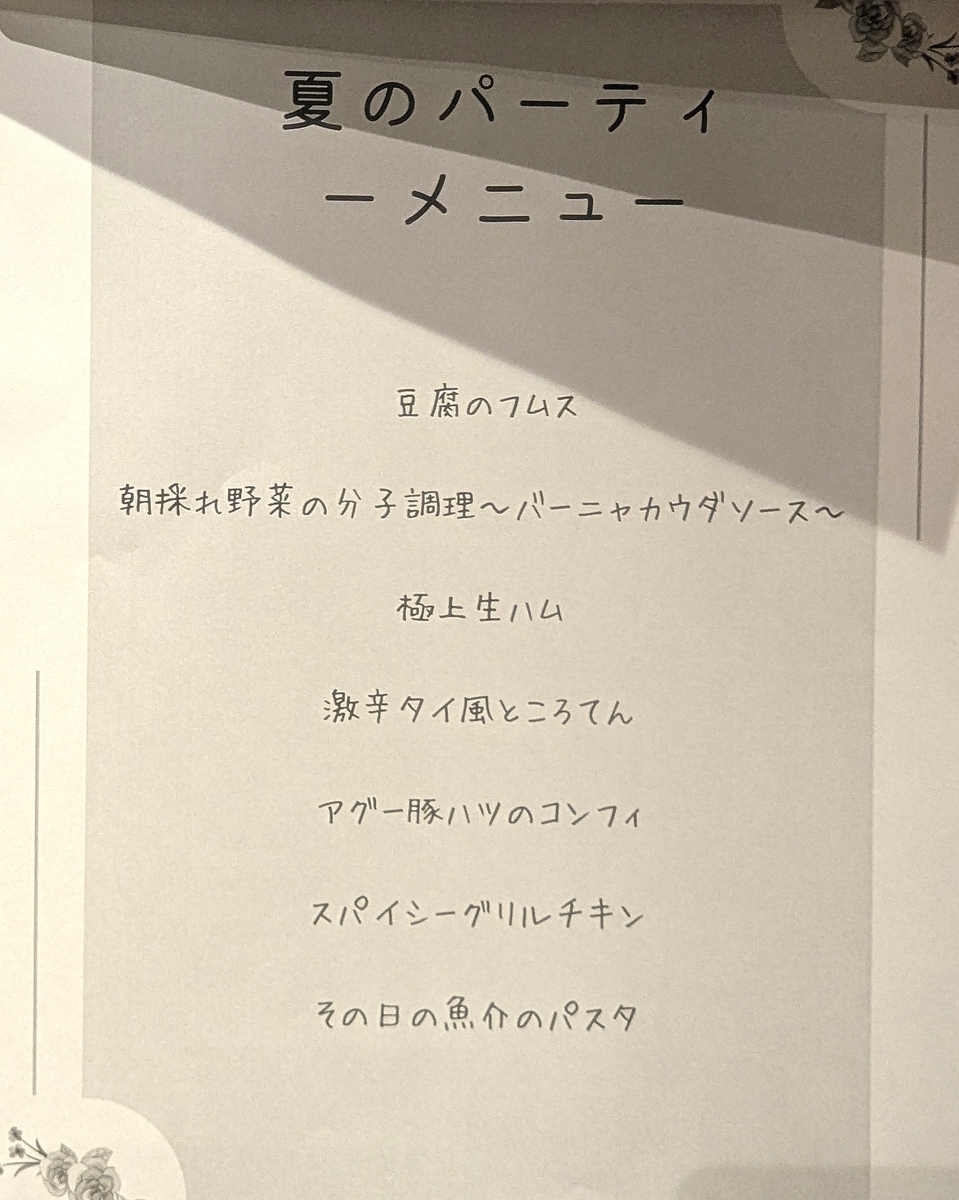 夏のパーティ
ーメニュー
豆腐のフムス
朝採れ野菜の分子調理〜バーニャカウダソース〜
極上生ハム
激辛タイ風ところてん
アグー豚ハツのコンフィ
スパイシーグリルチキン
その日の魚介のパスタ